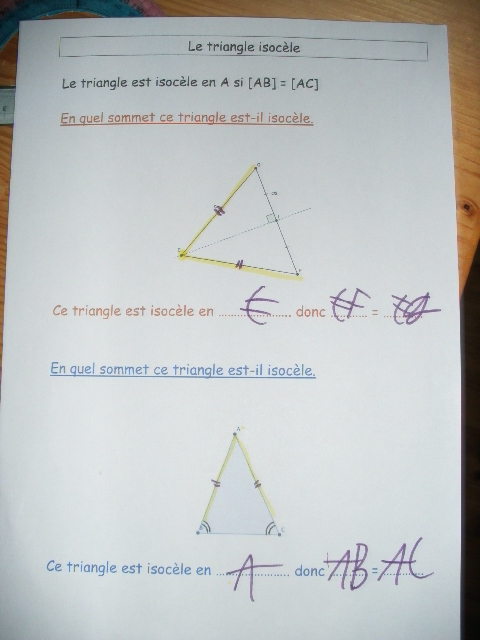 Le triangle isocèle
Le triangle est isocèle en A si [AB] = [AC]
En quel sommet ce triangle est-il isocèle.
Ce triangle est isocèle en .................... donc EF =
En quel sommet ce triangle est-il isocèle.
A
Ce triangle est isocèle en A donc AB = AC